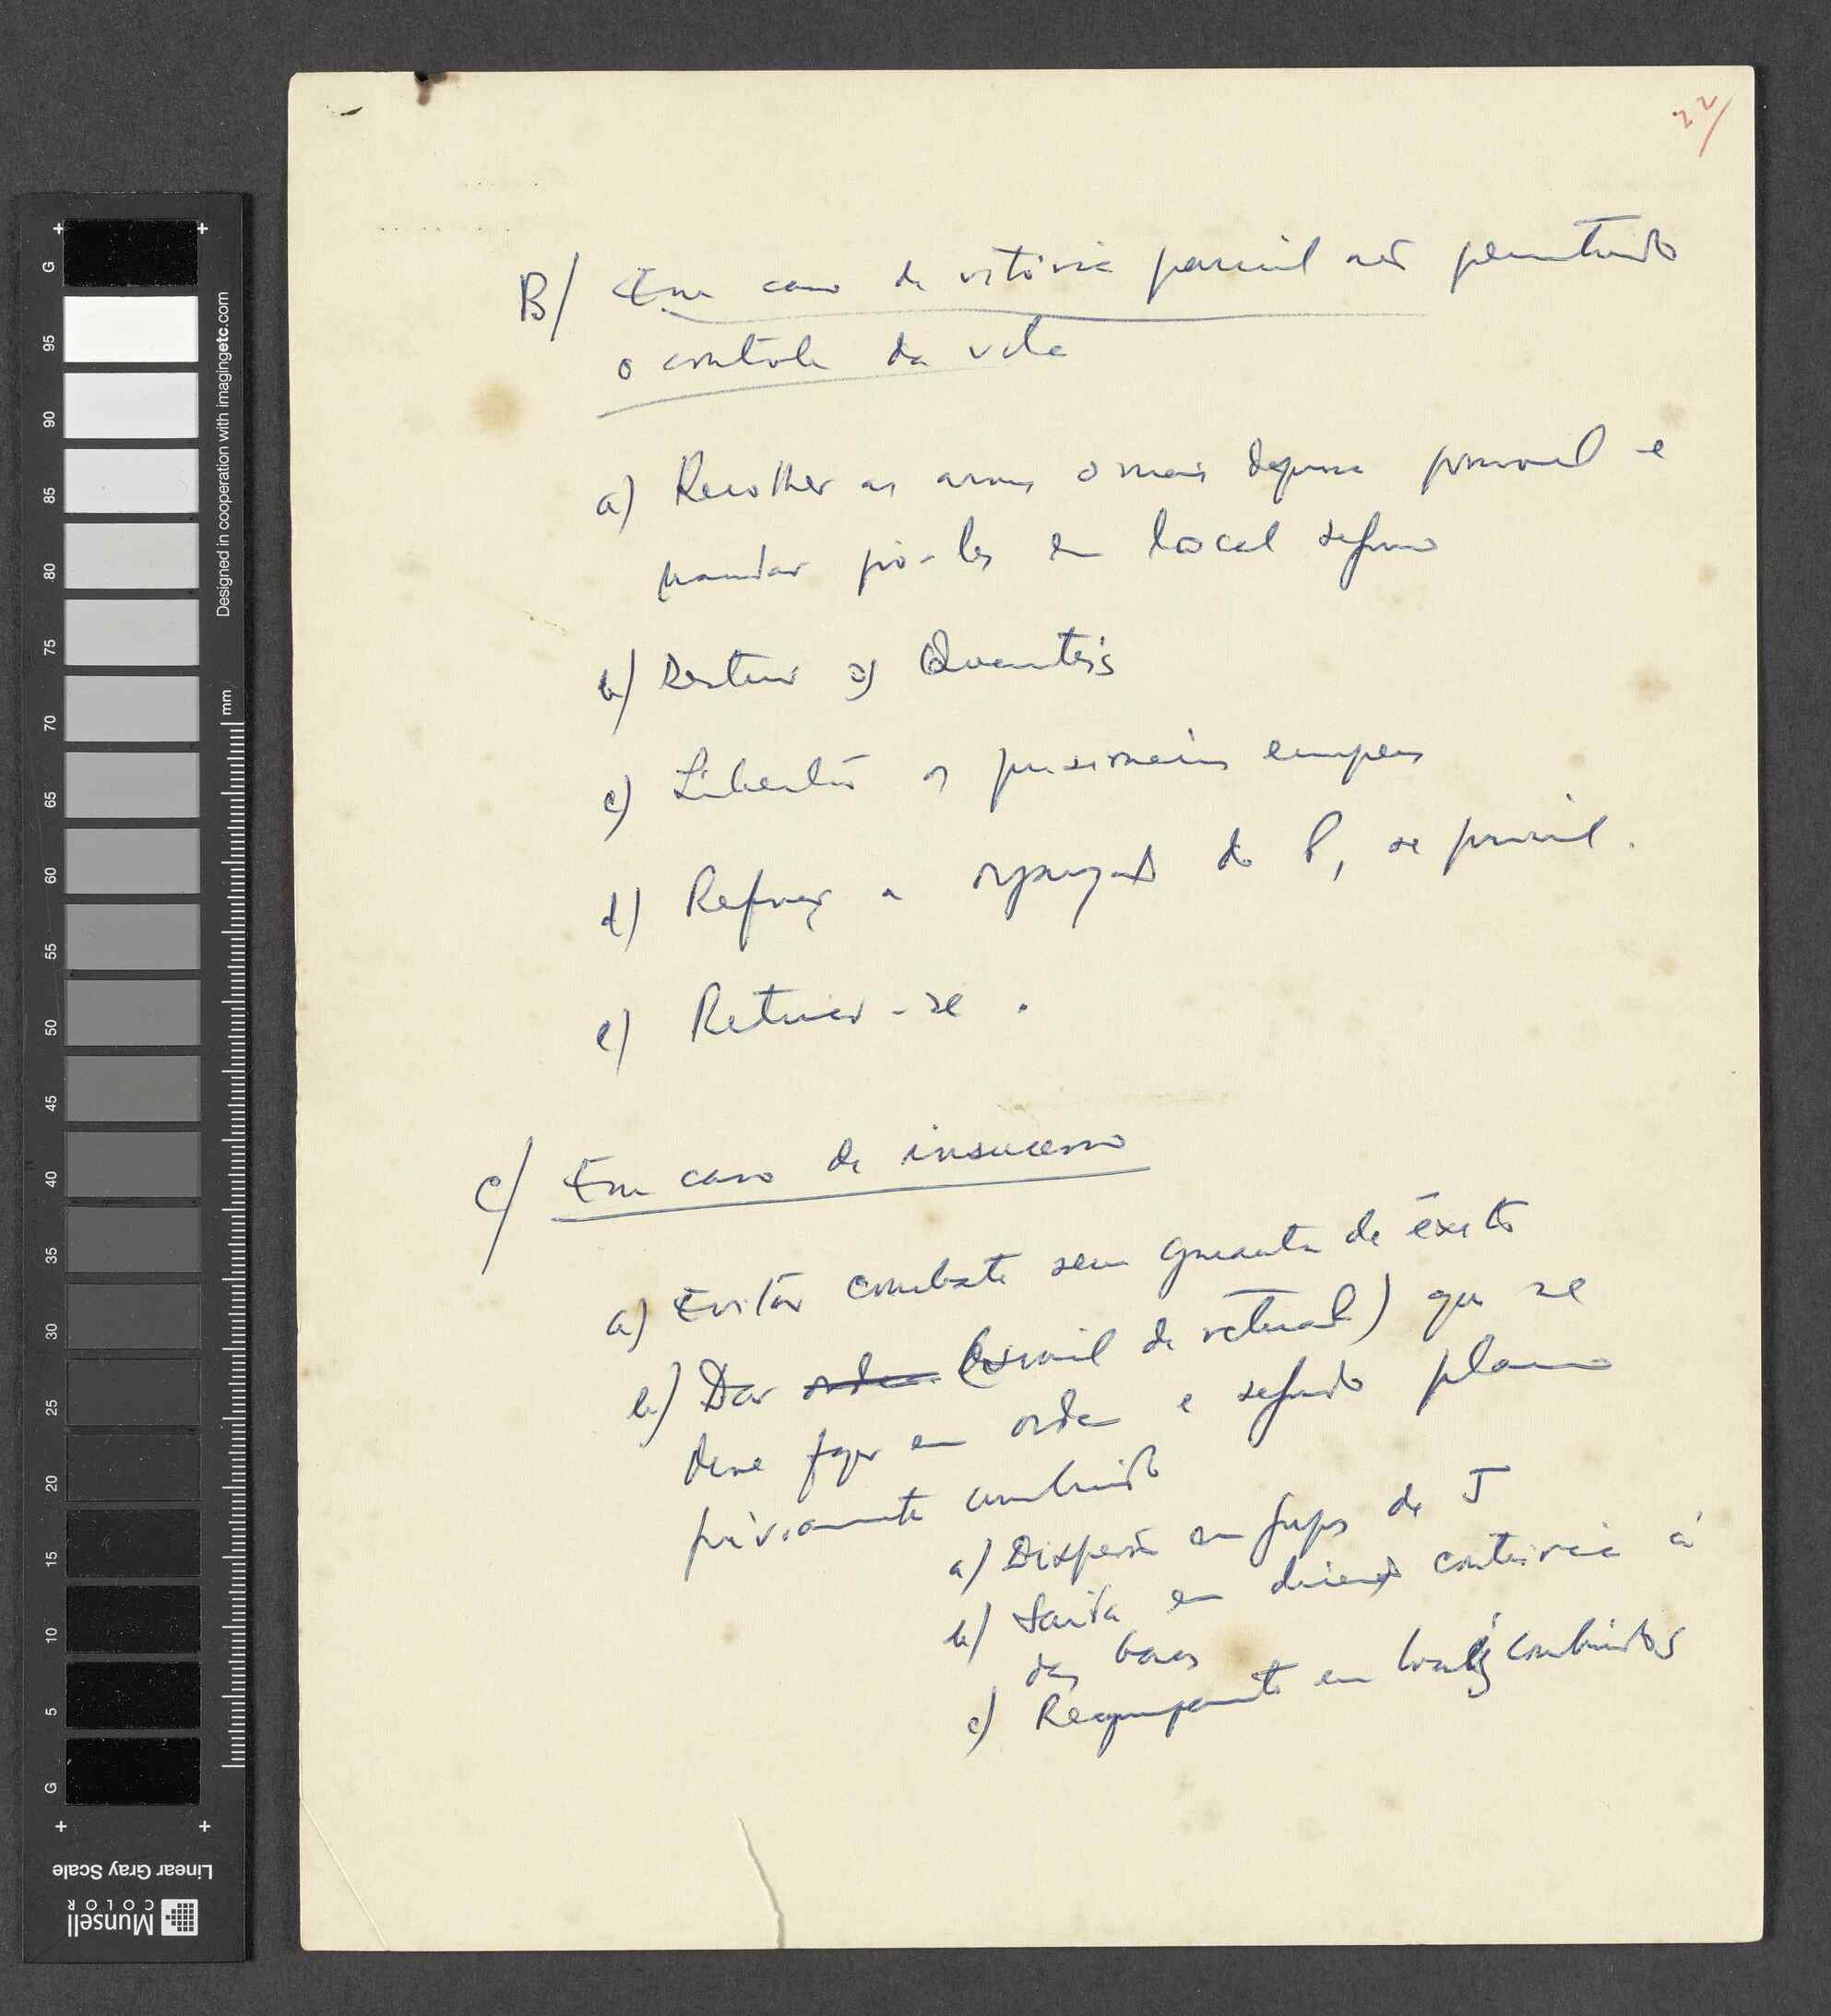 22/
B/ Em caso de vitória parcial não permitindo
o controle da vila
a) Recolher as armas o mais depressa possível e
mandar pô-las em local seguro
b) Destruir os Quartéis
c) Libertar os prisioneiros
d) Reforçar a organização do P, se possível.
e) Retirar-se.
C/ Em caso de insucesso
a) Evitar combate sem garantia de êxito
b) Dar ordem (sinal de retirada) que se
deve fazer em ordem e segundo plano
préviamente combinado
a) Dispersão em grupos de
b) Saída em direcção contrária à
das bases
c) Reagrupamento em locais combinados
G
95
90
85
80
75
70
65
60
55
50
45
40
35
30
25
20
15
10
5
G
Designed in cooperation with imagingetc.com
mm
Linear Gray Scale
Munsell
COLOR